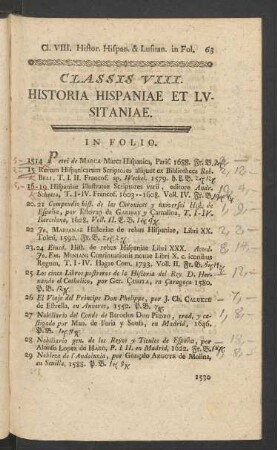 Cl. VIII. Histor. Hispan. & Lusitan. in Fol. 63
CLASSIS VIII.
HISTORIA HISPANIAE ET LV-
SITANIAE.
IN FOLIO.
1514 Petri de MARCA Marca Hispanica, Paris. 1688. Fr. B.
15 Rerum Hispanicarum Scriptores aliquot ex Bibliotheca Rob.
BELI, T. I. II. Francof. ap. Wechel. 1579.
16-19 Hispaniae Illustratae Scriptores varii, editore Andr.
Schotto, T. I-IV. Francof. 1603-1608. Vol. IV. Fr. B.
20. 21 Compendio hist. de las Chronicas y universal Hist. de
España, por Estevan de GARIBAY y Çamalloa, T. I-IV.
Barcelona, 1628. Vol. II.
22 Jo. MARIANAE Historiae de rebus Hispaniae, Libri XX.
Toleti, 1592.
23. 24 Eiusd. Hist. de rebus Hispaniae Libri XXX. Acced.
Jo. Em. MINIANI Continuationis novae Libri X. c. iconibus
Regum, T. I-IV. Hagae Com. 1733. Vol. II. Fr. B.
25 Los cinco Libros postreros de la Historia del Rey D. Her-
nando el Catholico, por Ger. ÇURITA, en Caragoça 1580.
P. B.
26 El Viaje del Principe Don Phelippe, por J. Ch. CALVETE
de Estrella, en Anveres, 1552. P. B.
27 Nobiliario del Conde de Barcelos Don Pedro, trad. y ca-
stigado por Man. de Faria y Sousa, en Madrid, 1646.
P. B.
28 Nobiliario gen. de los Reyes y Titulos de España, por
Alonso Lopez de HARO, P. I. II. en Madrid, 1622. Fr. B.
29 Nobleza de l'Andaluzia, por Gonçalo ARGOTE de Molina,
en Sevilla, 1588. P. B.
1530